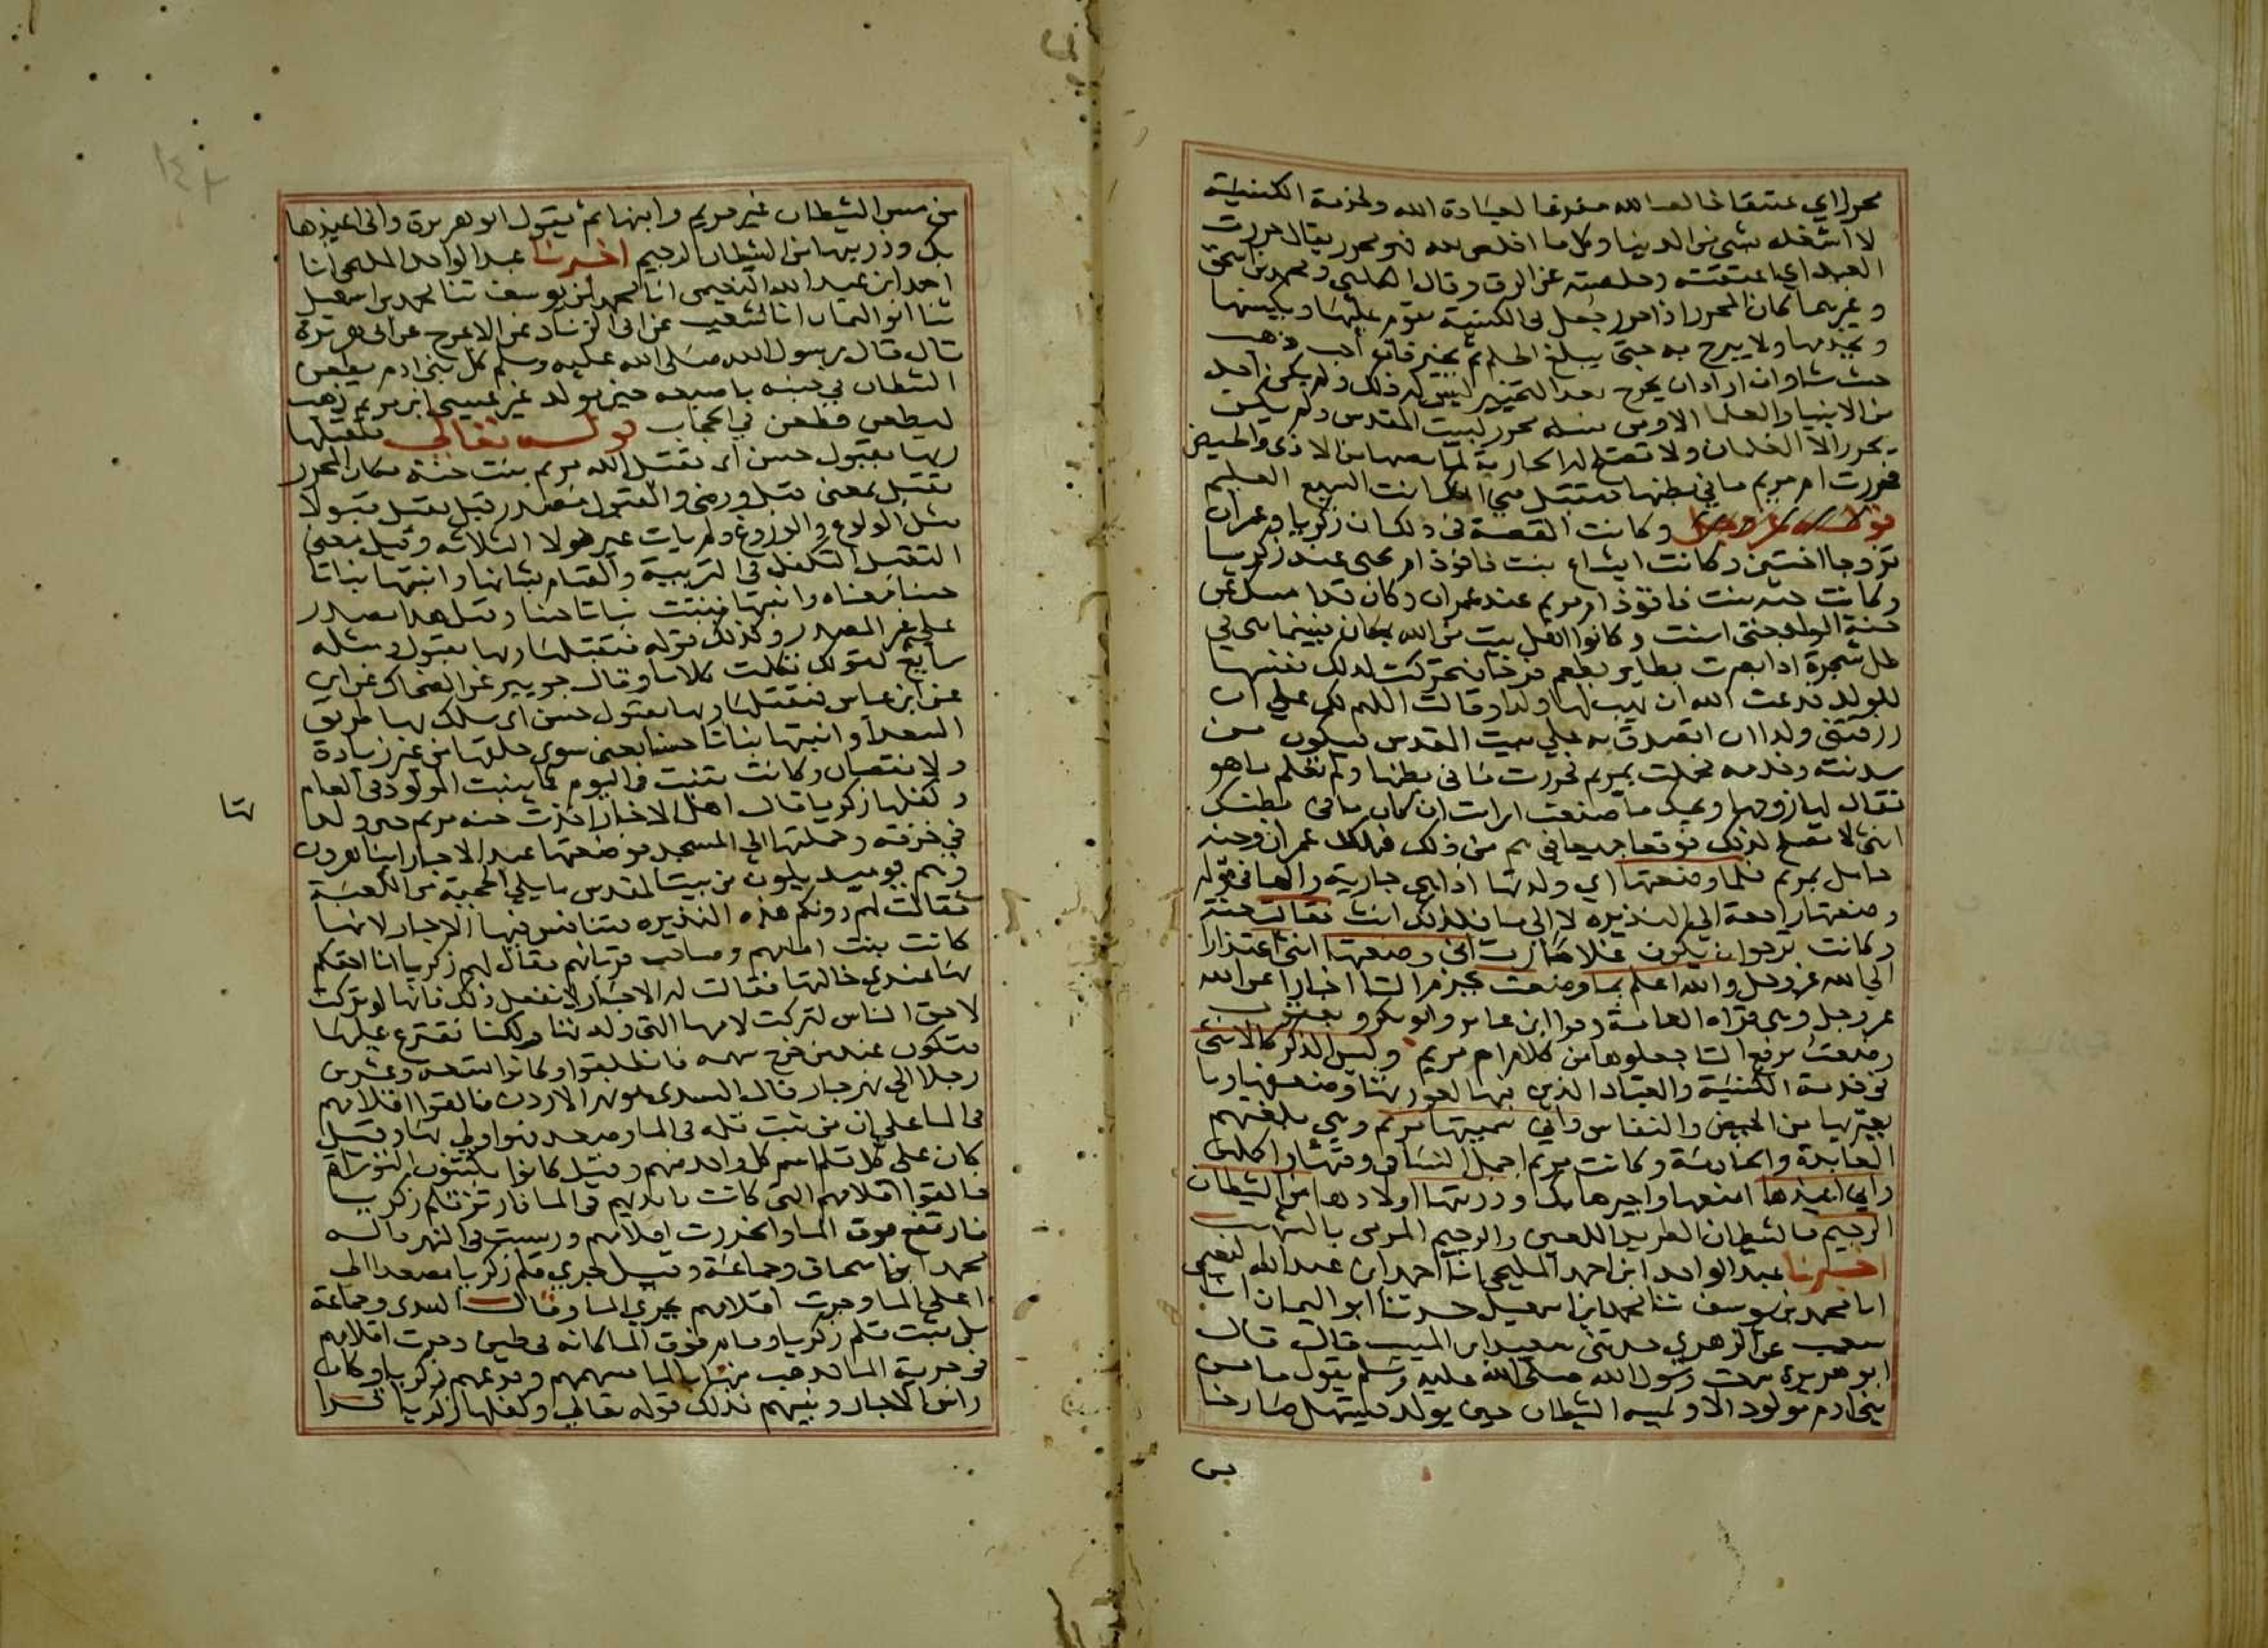 محررا اي عتيقا خالصا لله مفرغا لعبادة الله ولخدمة الكنيسة
لا اشغله بشي من الدنيا وكل ما اخلص لله فهو محرر يقال حررت
العبد اي اعتقته وخلصته عن الرق وقال الكلبي ومحمد بن اسحق
وغيرهما كان المحرر اذا حرر جعل في الكنيسة يقوم عليها ويكنسها
ويخدمها ولا يبرح به حتى يبلغ الحلم ثم يخير فان احب ذهب
حيث شا وان اراد ان يخرج بعد التخيير ليس له ذلك ولم يكن احد
من الانبيا والعلما الا ومن نسله محرر لبيت المقدس ولم يكن
يحرر الا الغلمان ولا تصلح له الجارية لما يصيبها من الاذى والحيض
فحررت ام مريم ما في بطنها فتقبل مني انك انت السميع العليم
وكانت القصة في ذلك ان زكريا وعمران
تزوجا اختين وكانت ايشاع بنت فاقوذ ام يحيى عند زكريا
وكانت حنه بنت فاقوذ ام مريم عند عمران وكان قد امسك عن
حنة الولد حتى اسنت وكانوا اهل بيت من الله بمكان فبينما هي في
ظل شجرة اذ ابصرت بطاير يطعم فرخا فتحركت لذلك نفسها
للولد فدعت الله ان يهب لها ولدا وقالت اللهم لك علي ان
رزقتني ولدا ان اتصدق به علي بيت المقدس فيكون من
سدنته وخدمه فحملت بمريم فحررت ما في بطنها ولم تعلم ما هو
فقال لها زوجها ويحك ما صنعت ارايت ان كان ما في بطنك
انثى لا تصلح لذلك فوقعا جميعا في هم من ذلك فهلك عمران وحنه
حامل بمريم فلما وضعتها اي ولدتها اذا هي جارية والها في قوله
وضعتها راجعة الي النذيره لا الي ما فلذلك انث فقالت حنة
وكانت ترجوا ان يكون غلاما رب اني وضعتها انثى اعتذارا
الي الله عز وجل والله اعلم بما وضعت بجزم التا اخبارا عن الله
عز وجل وهي قراه العامة وقرا ابن عامر وابو بكر ويعقوب
وضعت برفع التا جعلوها من كلام ام مريم وليس الذكر كالانثى
في خدمة الكنيسة والعباد الذين فيها لعورتها وضعفها وما
يعتريها من الحيض والنفاس واني سميتها مريم وهي بلغتهم
العابدة والخادمة وكانت مريم اجمل النسا في وقتها وا كلهن
واني اعيذها امنعها واجيرها بك وذريتها اولادها من الشيطان
الرجيم فالشيطان الطريد اللعين والرجيم المرمى بالشهب
اخبرنا عبد الواحد ابن احمد المليحي انا احمد ابن عبد الله النعيمي
انا محمد بن يوسف ثنا محمد ابن اسمعيل حدثنا ابو اليمان انا
شعيب عن الزهري حدثني سعيد ابن المسيب قال قال
ابو هريرة سمعت رسول الله صلى الله عليه وسلم يقول ما من
بني ادم مولود الا ويمسه الشيطان حين يولد فيستهل صارخا
من مس الشيطان غير مريم وابنها ثم يقول ابو هريرة واني اعيذها
بك وذريتها من الشيطان الرجيم اخبرنا عبد الواحد المليحي انا
احمد ابن عبد الله النعيمي انا محمد ابن يوسف ثنا محمد بن اسمعيل
ثنا ابو اليمان انا شعيب عن ابي الزناد عن الاعرج عن ابي هريرة
قال قال رسول الله صلى الله عليه وسلم كل بني ادم يطعن
الشيطان في جنبه باصبعه حين يولد غير عيسى ابن مريم ذهب
ليطعن فطعن في الحجاب قوله تعالى فتقبلها
ربها بقبول حسن اي تقبل الله مريم بنت حنة مكان المحرر
تقبل بمعنى قبل ورضى والقبول مصدر قبل يقبل قبولا
مثل الولوع والوزوع ولم يات غير هولا الثلاثه وقيل معنى
التقبل التكفل في التربية والقيام بشانها وانبتها نباتا
حسنا معناه وانبتها فنبتت نباتا حسنا وقيل هذا مصدر
على غير المصدر وكذلك قوله فتقبلها ربها بقبول ومثله
سايغ لقولك تكلمت كلاما وقال جويبر عن الضحاك عن ابن
عن ابن عباس فتقبلها ربها بقبول حسن اي سلك بها طريق
السعدا وانبتها نباتا حسنا يعني سوى خلقها من غير زيادة
ولا نقصان وكانت تنبت في اليوم كما ينبت المولود في العام
وكفلها زكريا قال اهل الاخبار اخذت حنه مريم حين ولدتها
في خرقه وحملتها الي المسجد فوضعتها عند الاحبار ابنا هرون
وهم يوميذ يلون من بيت المقدس ما يلي الحجبة من الكعبة
فقالت لهم دونكم هذه النذيره فتنافس فيها الاحبار لانها
كانت بنت امامهم وصاحب قربانهم فقال لهم زكريا انا احقكم
بها عندي خالتها فقالت له الاحبار لا نفعل ذلك فانها لو تركت
لاحق الناس لتركت لامها التي ولدتها ولكنا نقترع عليها
فتكون عند من خرج سهمه فانطلقوا وكانوا تسعه وعشرين
رجلا الي نهر جار قال السدي هو نهر الاردن فالقوا اقلامهم
في الما على ان من ثبت قلمه في الما وصعد فهو اولي بها وقيل
كان على كل قلم اسم كل واحد منهم وقيل كانوا يكتبون التوراة
فالقوا اقلامهم التي كانت بايديهم في الما فارتز قلم زكريا
فارتفع فوق الما وانحدرت اقلامهم ورسبت في النهر قاله
محمد ابن اسحاق وجماعة وقيل جري قلم زكريا مصعدا الى
اعلى الما وجرت اقلامهم بجري الما وقال السدي وجماعة
بل ثبت قلم زكريا وقام فوق الما كانه في طين وجرت اقلامهم
في جرية الما فذهب بها الما فسهمهم وقرعهم زكريا وكان
راس الاحبار ونبيهم فذلك قوله تعالي وكفلها زكريا قرا